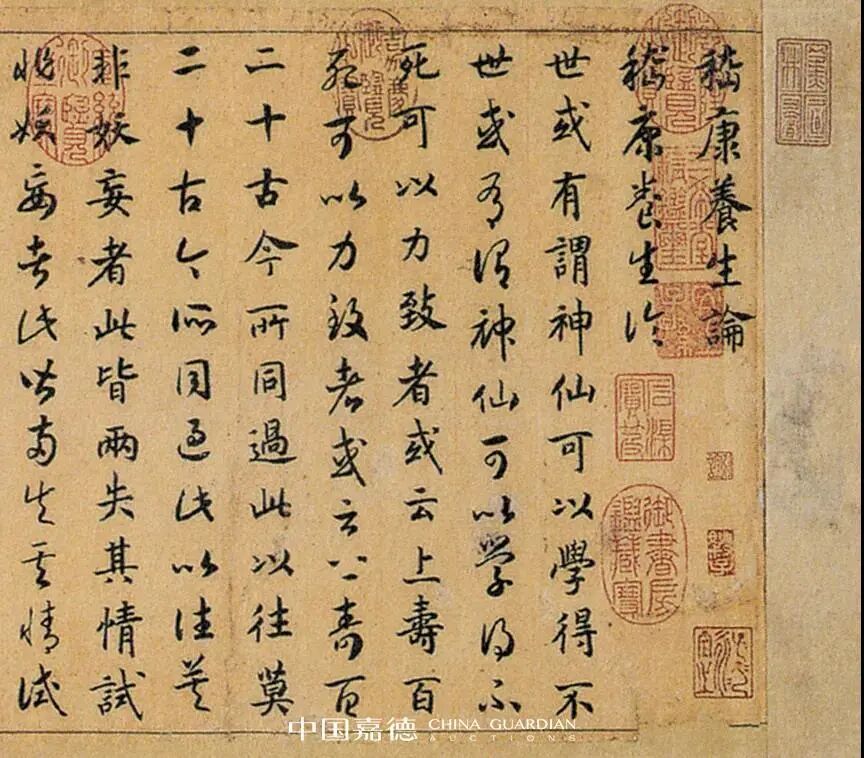 嵇康養生論
嵇康養生論
世或有謂神仙可以學得不
世或有謂神仙可以學得不
死可以力致者或云上壽百
死可以力致者或云上壽百
二十古今所同過此以往莫
二十古今所同過此以往莫
非妖妄者此皆兩失其情試
非妖妄者此皆兩失其情試
三希堂精鑑璽
宜子孫
石渠寶笈
御書房鑑藏寶
嘉慶御覽之寶
中国嘉德 CHINA GUARDIAN
AUCTIONS